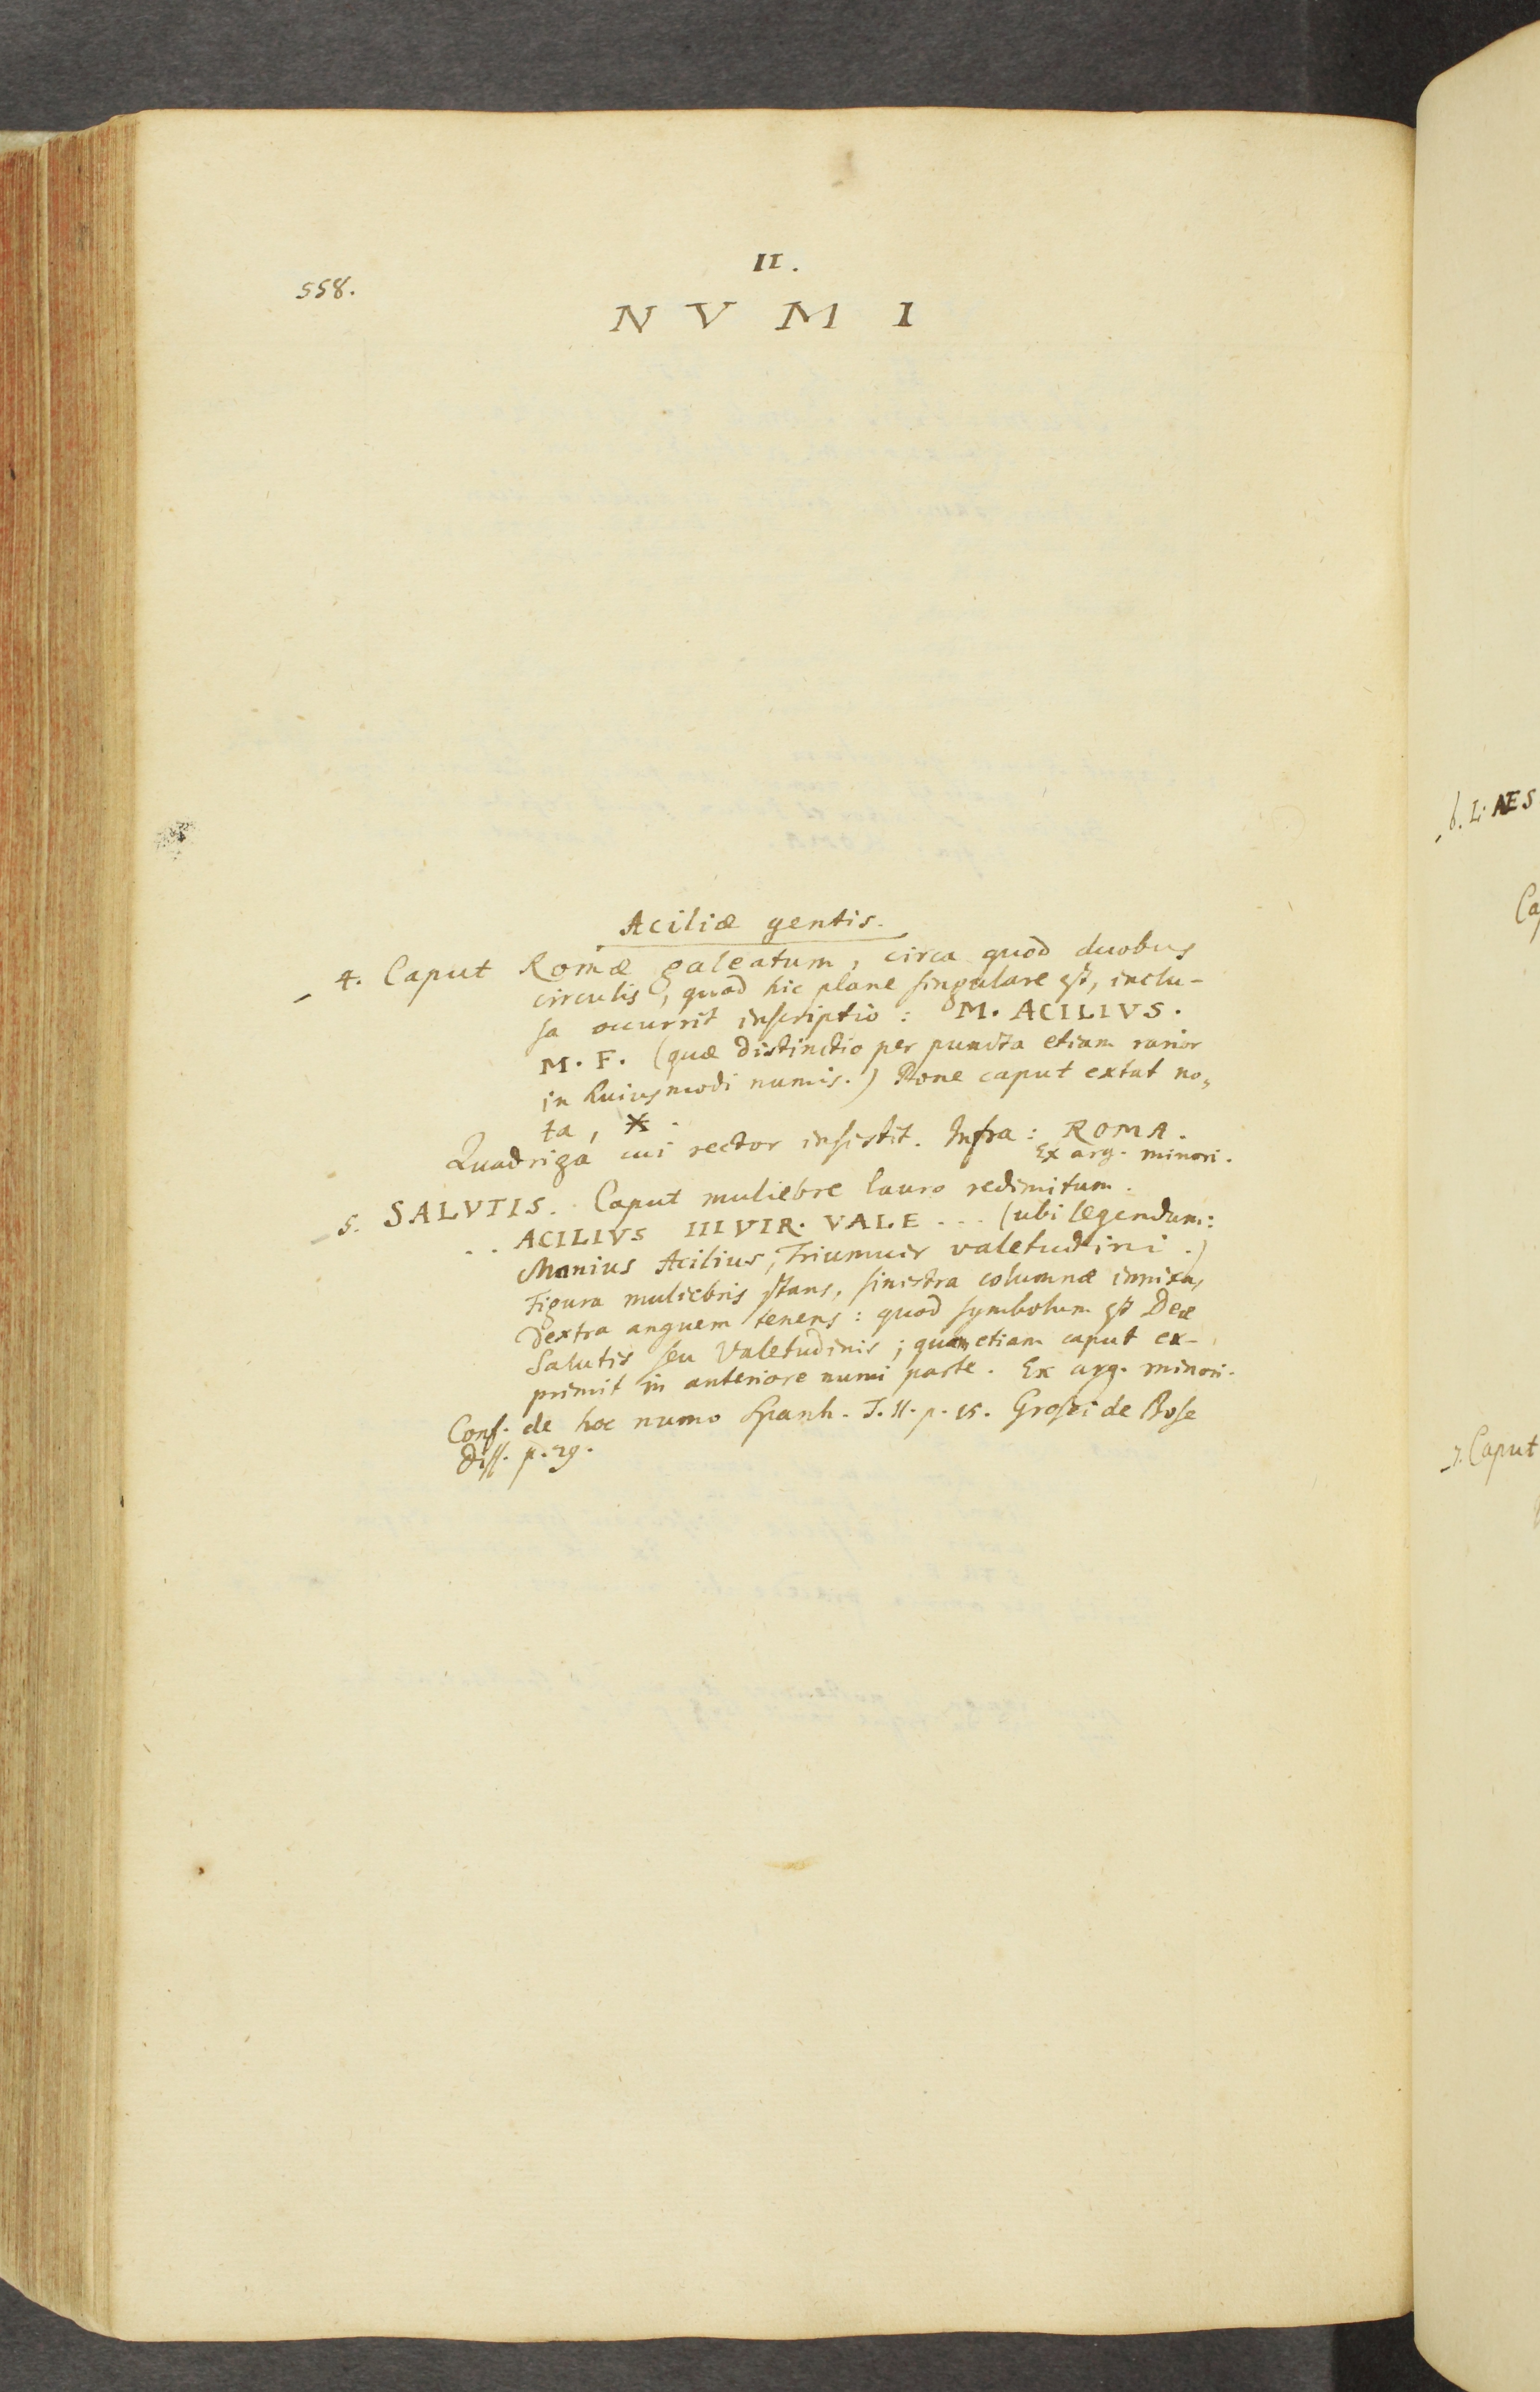 558.
II.
NVMI
Aciliæ gentis.
4. Caput Romæ galeatum, circa quod duobus
circulis, quod hic plane singulare est, inclu-
sa occurrit inscriptio: M. ACILIVS.
M. F. (quæ distinctio per puncta etiam rarior
in huiusmodi numis.) Pone caput extat no-
ta, X.
Quadriga cui rector insistit. Infra: ROMA.
Ex arg. minori.
5. SALVTIS. Caput muliebre lauro redimitum.
.. ACILIVS IIIVIR. VALE ... (ubi legendum:
Manius Acilius, Triumuir valetudini.)
Figura muliebris stans, sinistra columnæ innixa,
dextra anguem tenens: quod symbolum est Deæ
Salutis seu Valetudinis; quam etiam caput ex-
primit in anteriore numi parte. Ex arg. minori.
Conf. de hoc numo Spanh. T. II. p. 15. de Bose
Diss. p. 29.
6. L. AES
Ca
7. Caput